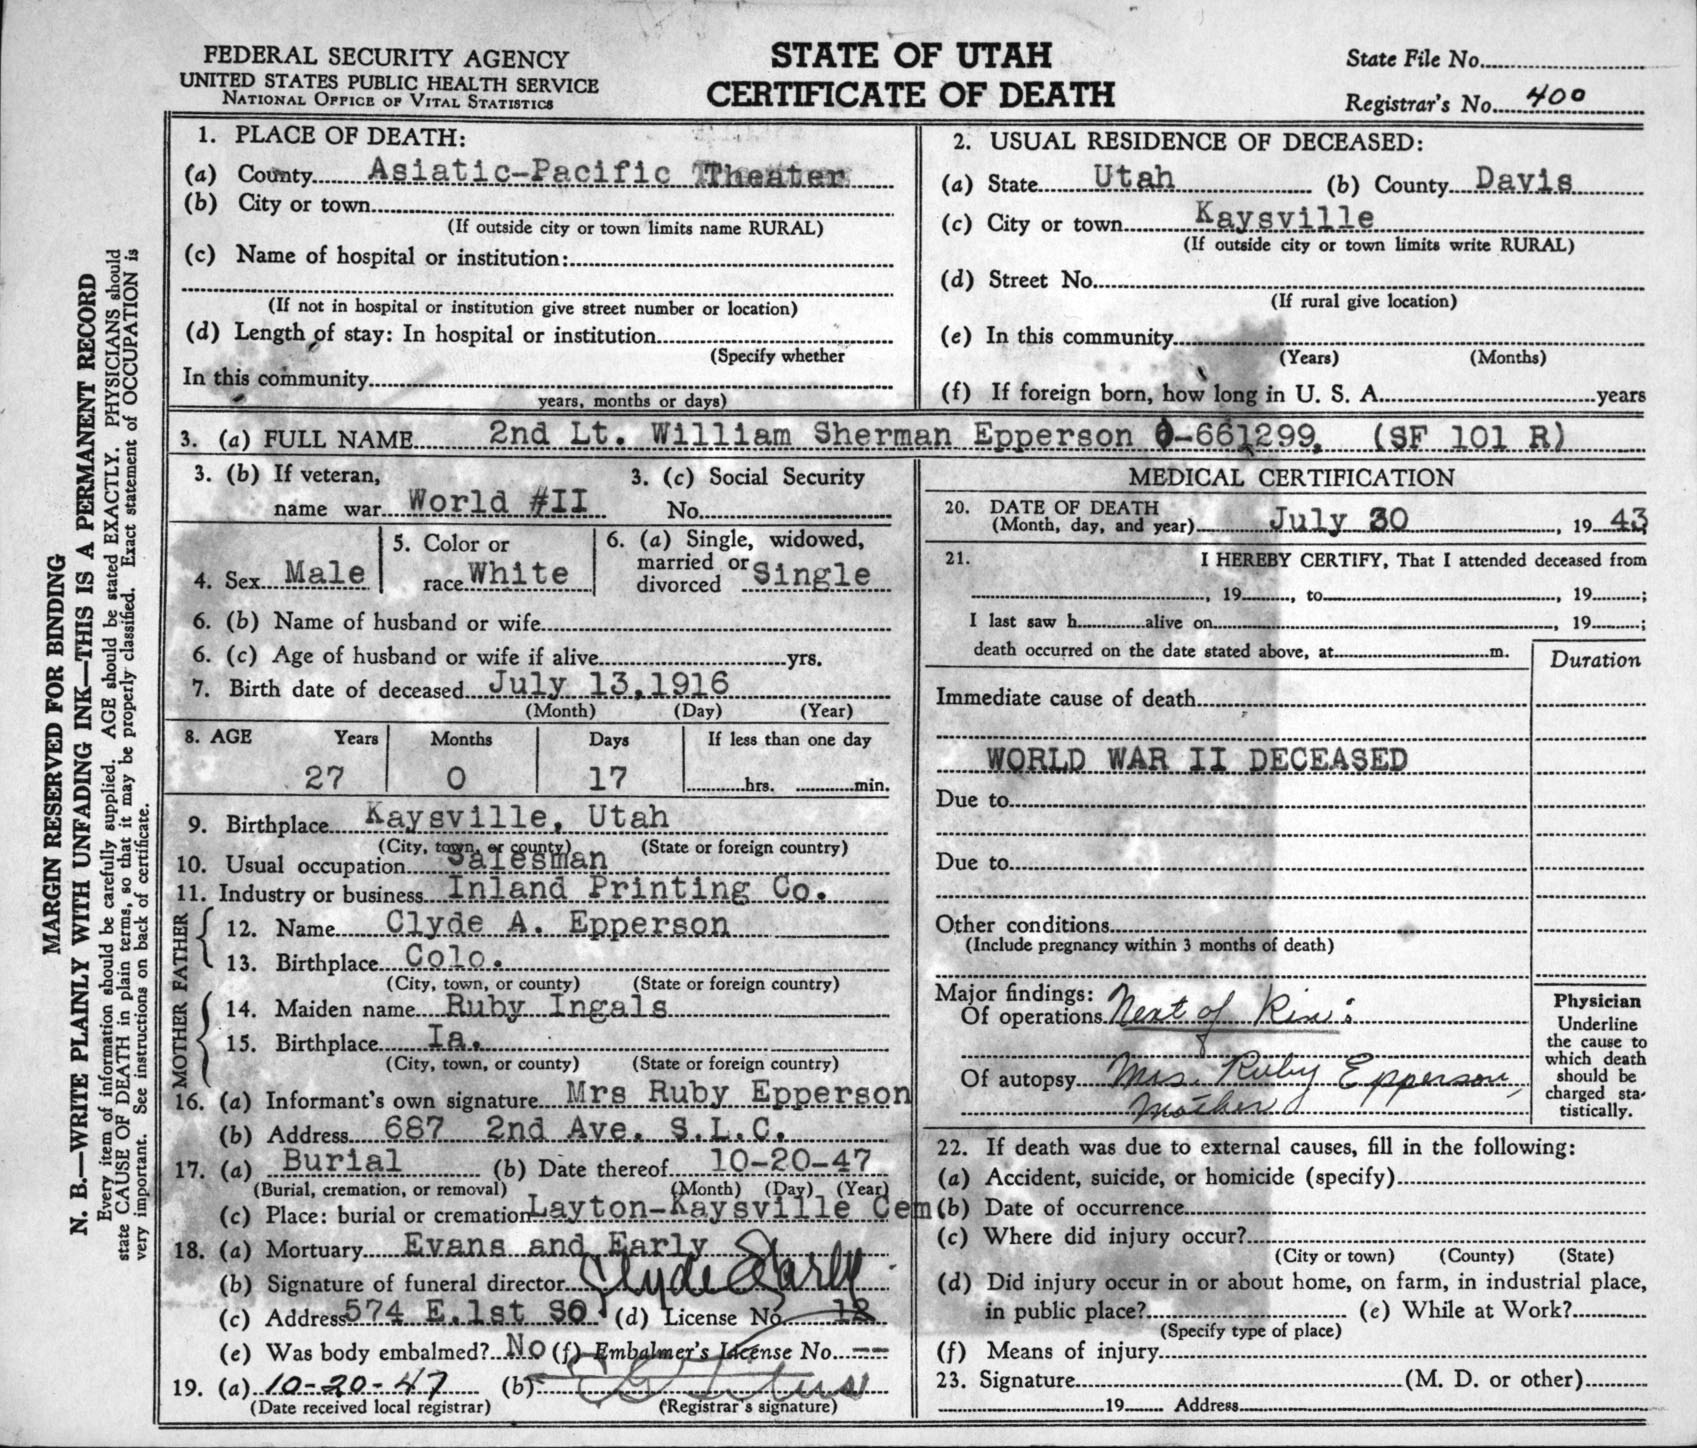 FEDERAL SECURITY AGENCY
UNITED STATES PUBLIC HEALTH SERVICE
NATIONAL OFFICE OF VITAL STATISTICS
STATE OF UTAH
CERTIFICATE OF DEATH
State File No.
Registrar's No. 400
MARGIN RESERVED FOR BINDING
N. B.—WRITE PLAINLY WITH UNFADING INK—THIS IS A PERMANENT RECORD
Every item of information should be carefully supplied. AGE should be stated EXACTLY. PHYSICIANS should
state CAUSE OF DEATH in plain terms, so that it may be properly classified. Exact statement of OCCUPATION is
very important. See instructions on back of certificate.
1. PLACE OF DEATH:
(a) County Asiatic-Pacific Theater
(b) City or town
(If outside city or town limits name RURAL)
(c) Name of hospital or institution:
(If not in hospital or institution give street number or location)
(d) Length of stay: In hospital or institution
(Specify whether
In this community
years, months or days)
2. USUAL RESIDENCE OF DECEASED:
(a) State Utah (b) County Davis
(c) City or town Kaysville
(If outside city or town limits write RURAL)
(d) Street No.
(If rural give location)
(e) In this community
(Years) (Months)
(f) If foreign born, how long in U. S. A. years
3. (a) FULL NAME 2nd Lt. William Sherman Epperson O-661299, (SF 101 R)
3. (b) If veteran, 3. (c) Social Security
name war World #II No.
4. Sex Male
5. Color or
race White
6. (a) Single, widowed,
married or
divorced Single
6. (b) Name of husband or wife
6. (c) Age of husband or wife if alive yrs.
7. Birth date of deceased July 13, 1916
(Month) (Day) (Year)
8. AGE Years Months Days If less than one day
27 0 17 hrs. min.
9. Birthplace Kaysville, Utah
(City, town, or county) (State or foreign country)
10. Usual occupation Salesman
11. Industry or business Inland Printing Co.
FATHER
12. Name Clyde A. Epperson
13. Birthplace Colo.
(City, town, or county) (State or foreign country)
MOTHER
14. Maiden name Ruby Ingals
15. Birthplace Ia.
(City, town, or county) (State or foreign country)
16. (a) Informant's own signature Mrs Ruby Epperson
(b) Address 687 2nd Ave. S.L.C.
17. (a) Burial (b) Date thereof 10-20-47
(Burial, cremation, or removal) (Month) (Day) (Year)
(c) Place: burial or cremation Layton-Kaysville Cem
18. (a) Mortuary Evans and Early
(b) Signature of funeral director Clyde Early
(c) Address 574 E. 1st SO (d) License No. 12
(e) Was body embalmed? No (f) Embalmer's License No. --
19. (a) 10-20-47 (b)
(Date received local registrar) (Registrar's signature)
MEDICAL CERTIFICATION
20. DATE OF DEATH
(Month, day, and year) July 30, 19 43
21. I HEREBY CERTIFY, That I attended deceased from
, 19 , to , 19 ;
I last saw h alive on , 19 ;
death occurred on the date stated above, at m.
Duration
Immediate cause of death
WORLD WAR II DECEASED
Due to
Due to
Other conditions
(Include pregnancy within 3 months of death)
Major findings:
Of operations Next of Kin:
Of autopsy Mrs. Ruby Epperson,
Mother
Physician
Underline
the cause to
which death
should be
charged sta-
tistically.
22. If death was due to external causes, fill in the following:
(a) Accident, suicide, or homicide (specify)
(b) Date of occurrence
(c) Where did injury occur?
(City or town) (County) (State)
(d) Did injury occur in or about home, on farm, in industrial place,
in public place? (e) While at Work?
(Specify type of place)
(f) Means of injury
23. Signature (M. D. or other)
19 Address